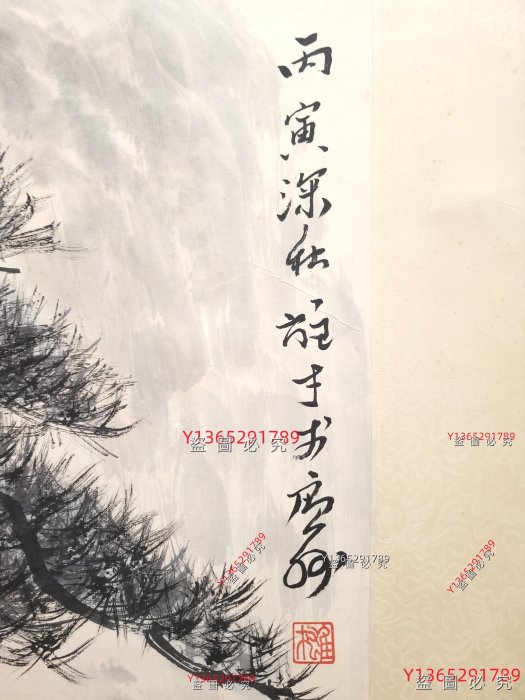 丙寅深秋雄才於广州
Y1365291789
盗圖必究
Y1365291789
盗圖必究
Y1365291789
盗圖必究
Y1365291789
盗圖必究
Y1365291789
盗圖必究
Y1365291789
盗圖必究
Y1365291789
盗圖必究